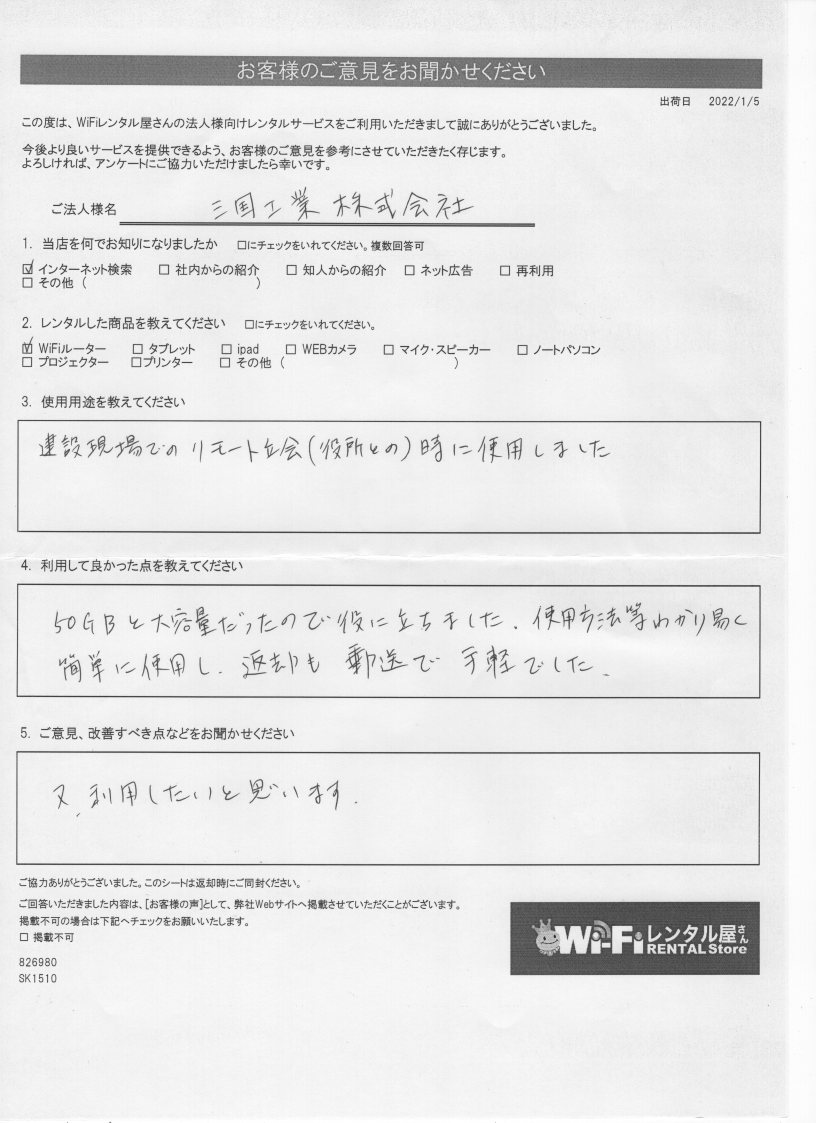 お客様のご意見をお聞かせください
出荷日 2022/1/5
この度は、WiFiレンタル屋さんの法人様向けレンタルサービスをご利用いただきまして誠にありがとうございました。
今後より良いサービスを提供できるよう、お客様のご意見を参考にさせていただきたく存じます。
よろしければ、アンケートにご協力いただけましたら幸いです。
ご法人様名 三国工業株式会社
1. 当店を何でお知りになりましたか □にチェックをいれてください。複数回答可
☑ インターネット検索 □ 社内からの紹介 □ 知人からの紹介 □ ネット広告 □ 再利用
□ その他 ( )
2. レンタルした商品を教えてください □にチェックをいれてください。
☑ WiFiルーター □ タブレット □ ipad □ WEBカメラ □ マイク・スピーカー □ ノートパソコン
□ プロジェクター □プリンター □ その他 ( )
3. 使用用途を教えてください
建設現場でのリモート立会(役所との)時に使用しました
4. 利用して良かった点を教えてください
50GBと大容量だったので役に立ちました。使用方法等わかり易く
簡単に使用し、返却も郵送で手軽でした。
5. ご意見、改善すべき点などをお聞かせください
又、利用したいと思います。
ご協力ありがとうございました。このシートは返却時にご同封ください。
ご回答いただきました内容は、[お客様の声]として、弊社Webサイトへ掲載させていただくことがございます。
掲載不可の場合は下記へチェックをお願いいたします。
□ 掲載不可
826980
SK1510
Wi-Fiレンタル屋さん
RENTAL Store